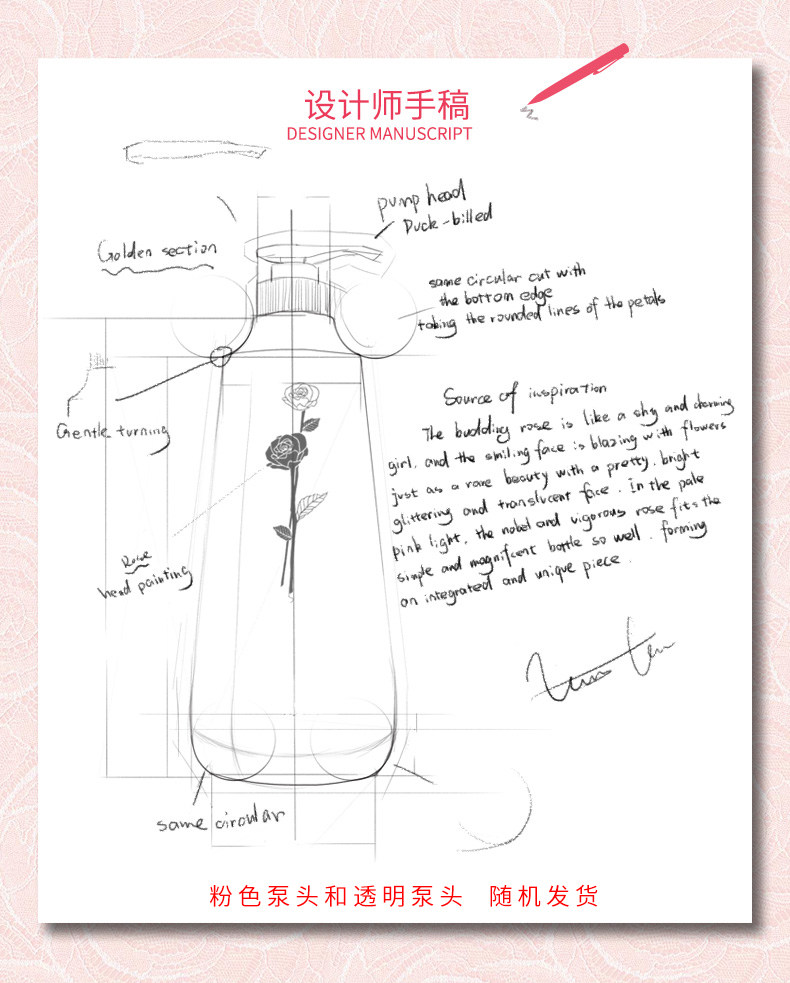 设计师手稿
DESIGNER MANUSCRIPT
pump head
Duck-billed
Golden section
same circular cut with
the bottom edge
taking the rounded lines of the petals
Gentle turning
Source of inspiration
The budding rose is like a shy and charming
girl. and the smiling face is blazing with flowers
just as a rare beauty with a pretty. bright
glittering and translucent face. In the pale
pink light, the nobel and vigorous rose fits the
simple and magnificent bottle so well. forming
an integrated and unique piece.
Rose
head painting
same circular
粉色泵头和透明泵头 随机发货